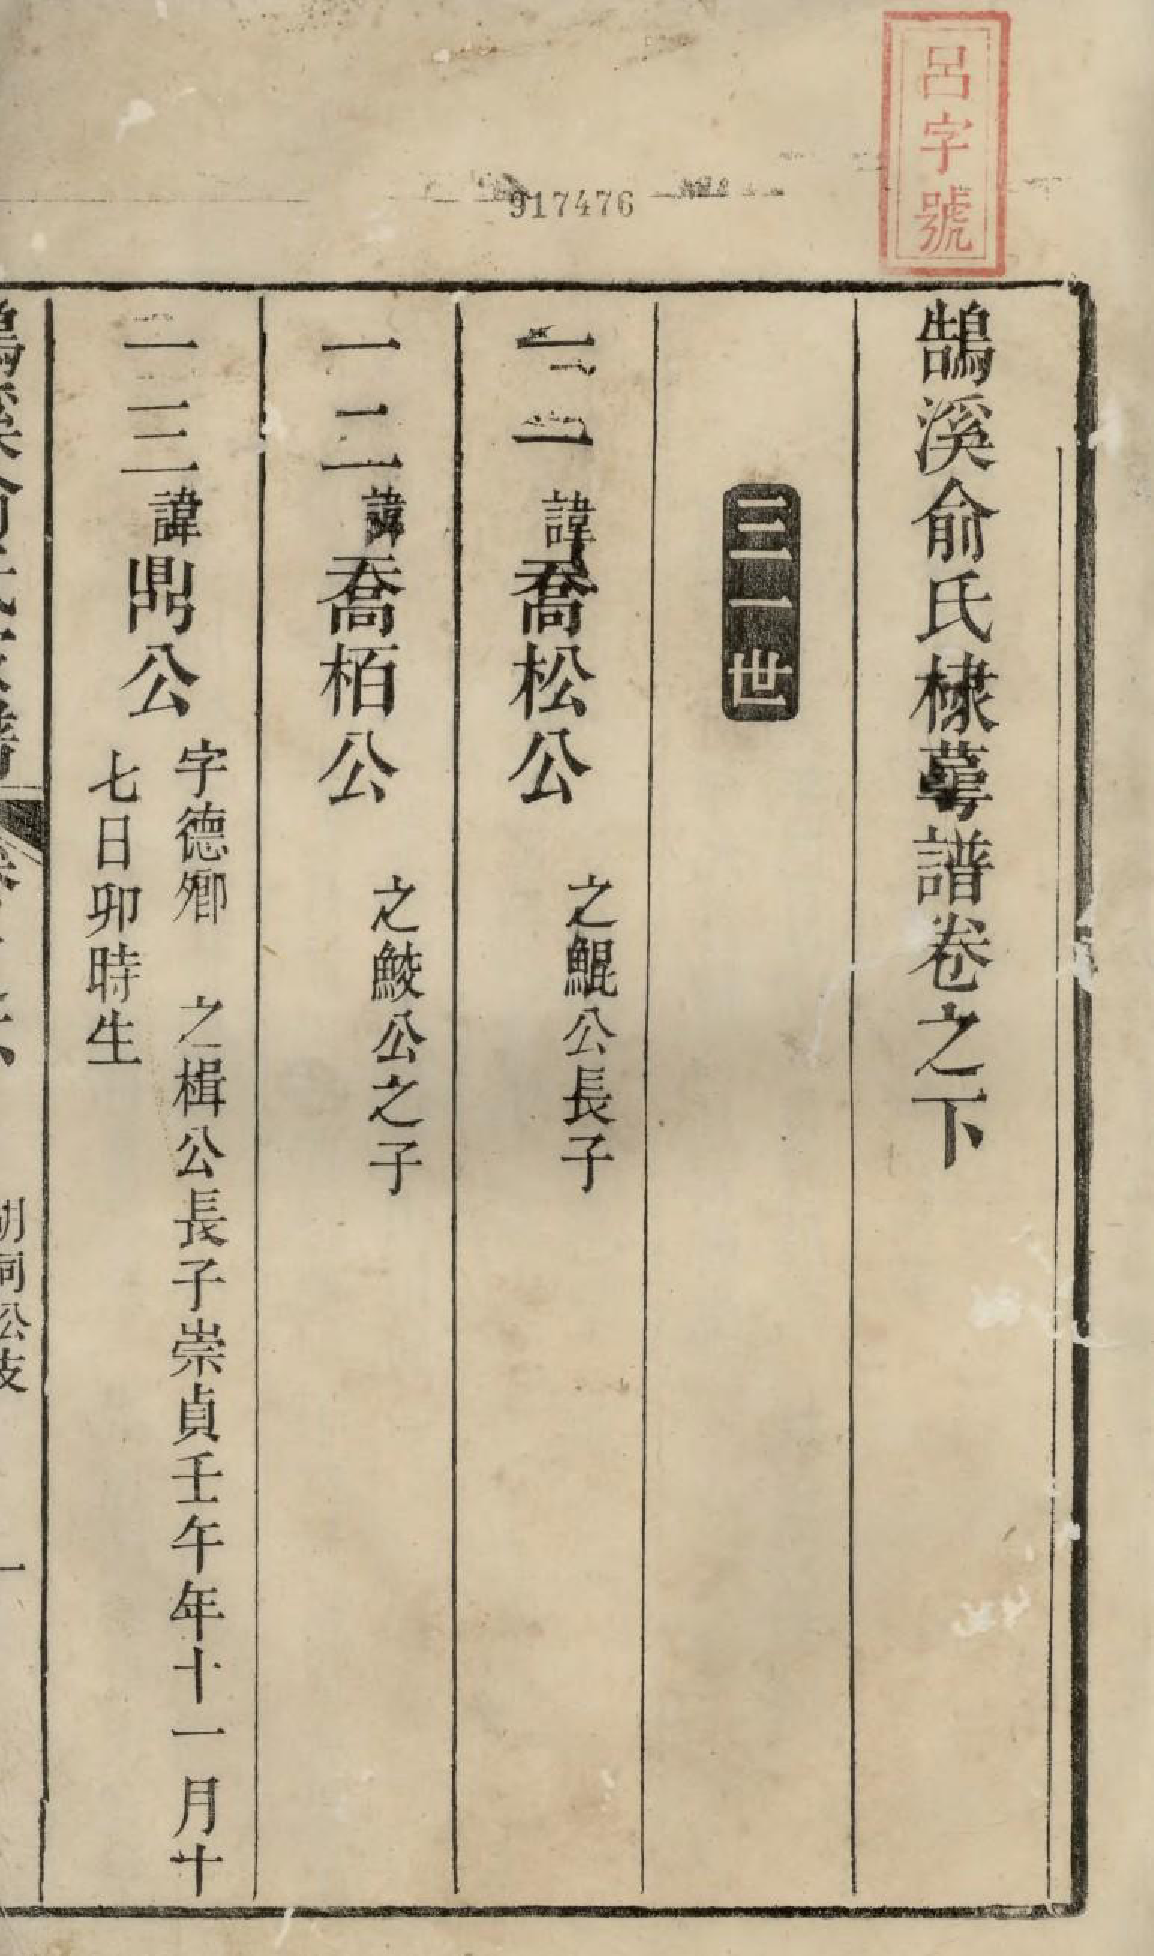 呂字號
917476
鵠溪俞氏棣萼譜卷之下
三一世
一一諱喬松公 之鯤公長子
一二諱喬栢公 之鮻公之子
一三諱鼎公 字德卿 之楫公長子崇貞壬午年十一月十
七日卯時生